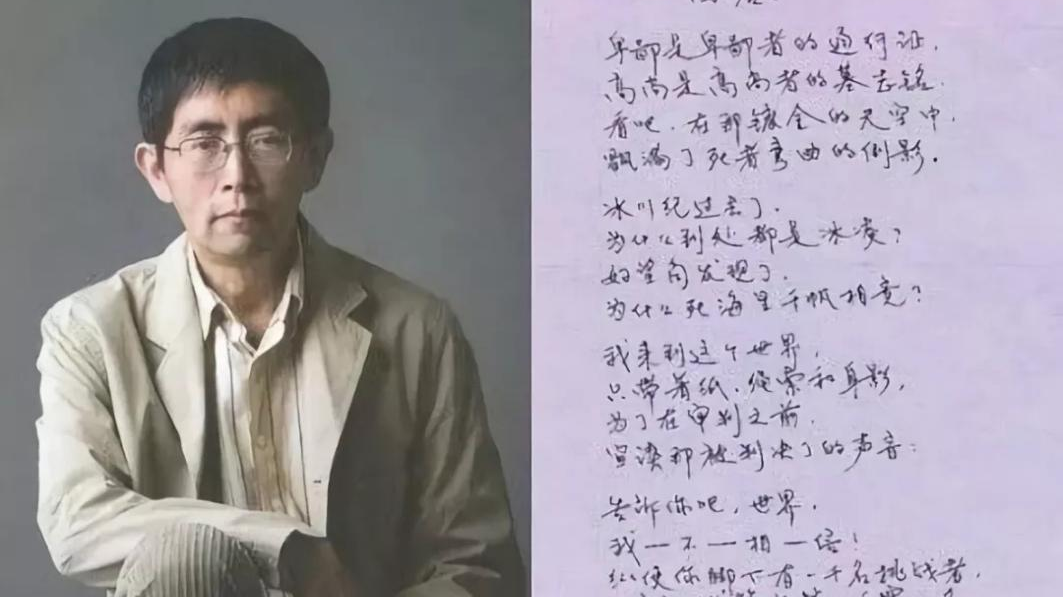 卑鄙是卑鄙者的通行证,
高尚是高尚者的墓志铭.
看吧,在那镀金的天空中,
飘满了死者弯曲的倒影.
冰川纪过去了,
为什么到处都是冰凌?
好望角发现了,
为什么死海里千帆相竞?
我来到这个世界,
只带着纸、绳索和身影,
为了在审判之前,
宣读那被判决了的声音:
告诉你吧,世界,
我—不—相—信!
纵使你脚下有一千名挑战者,